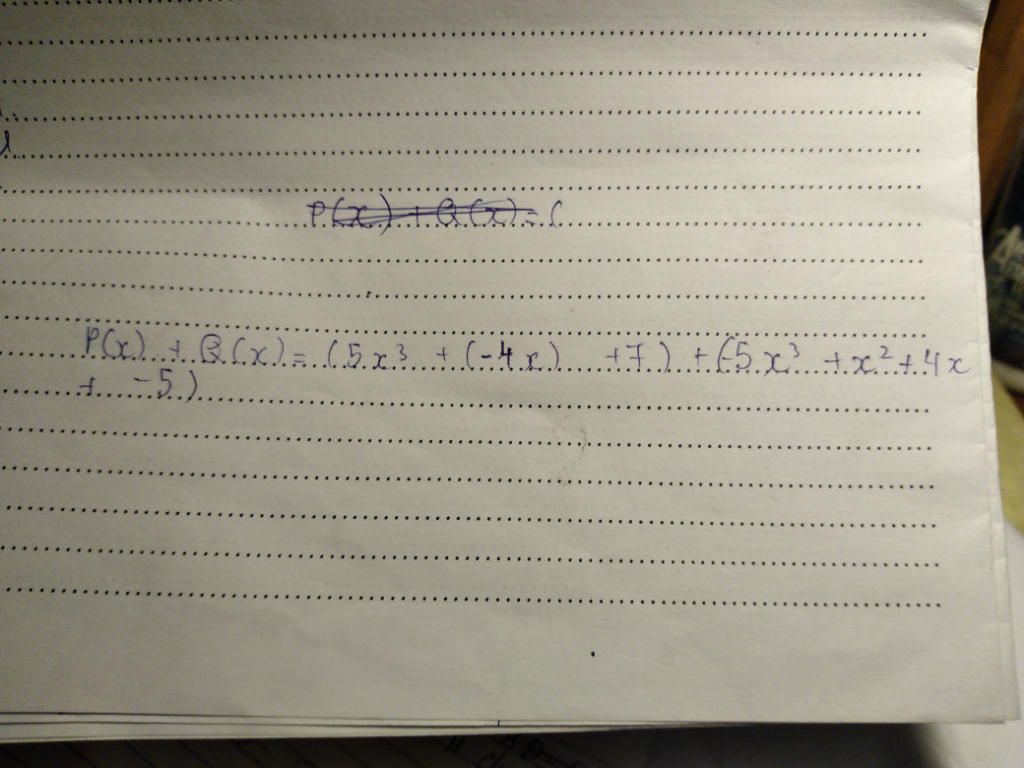 P(x) + Q(x) = (
P(x) + Q(x) = (5x³ + (-4x) +7) + (-5x³ + x² + 4x
+ -5)